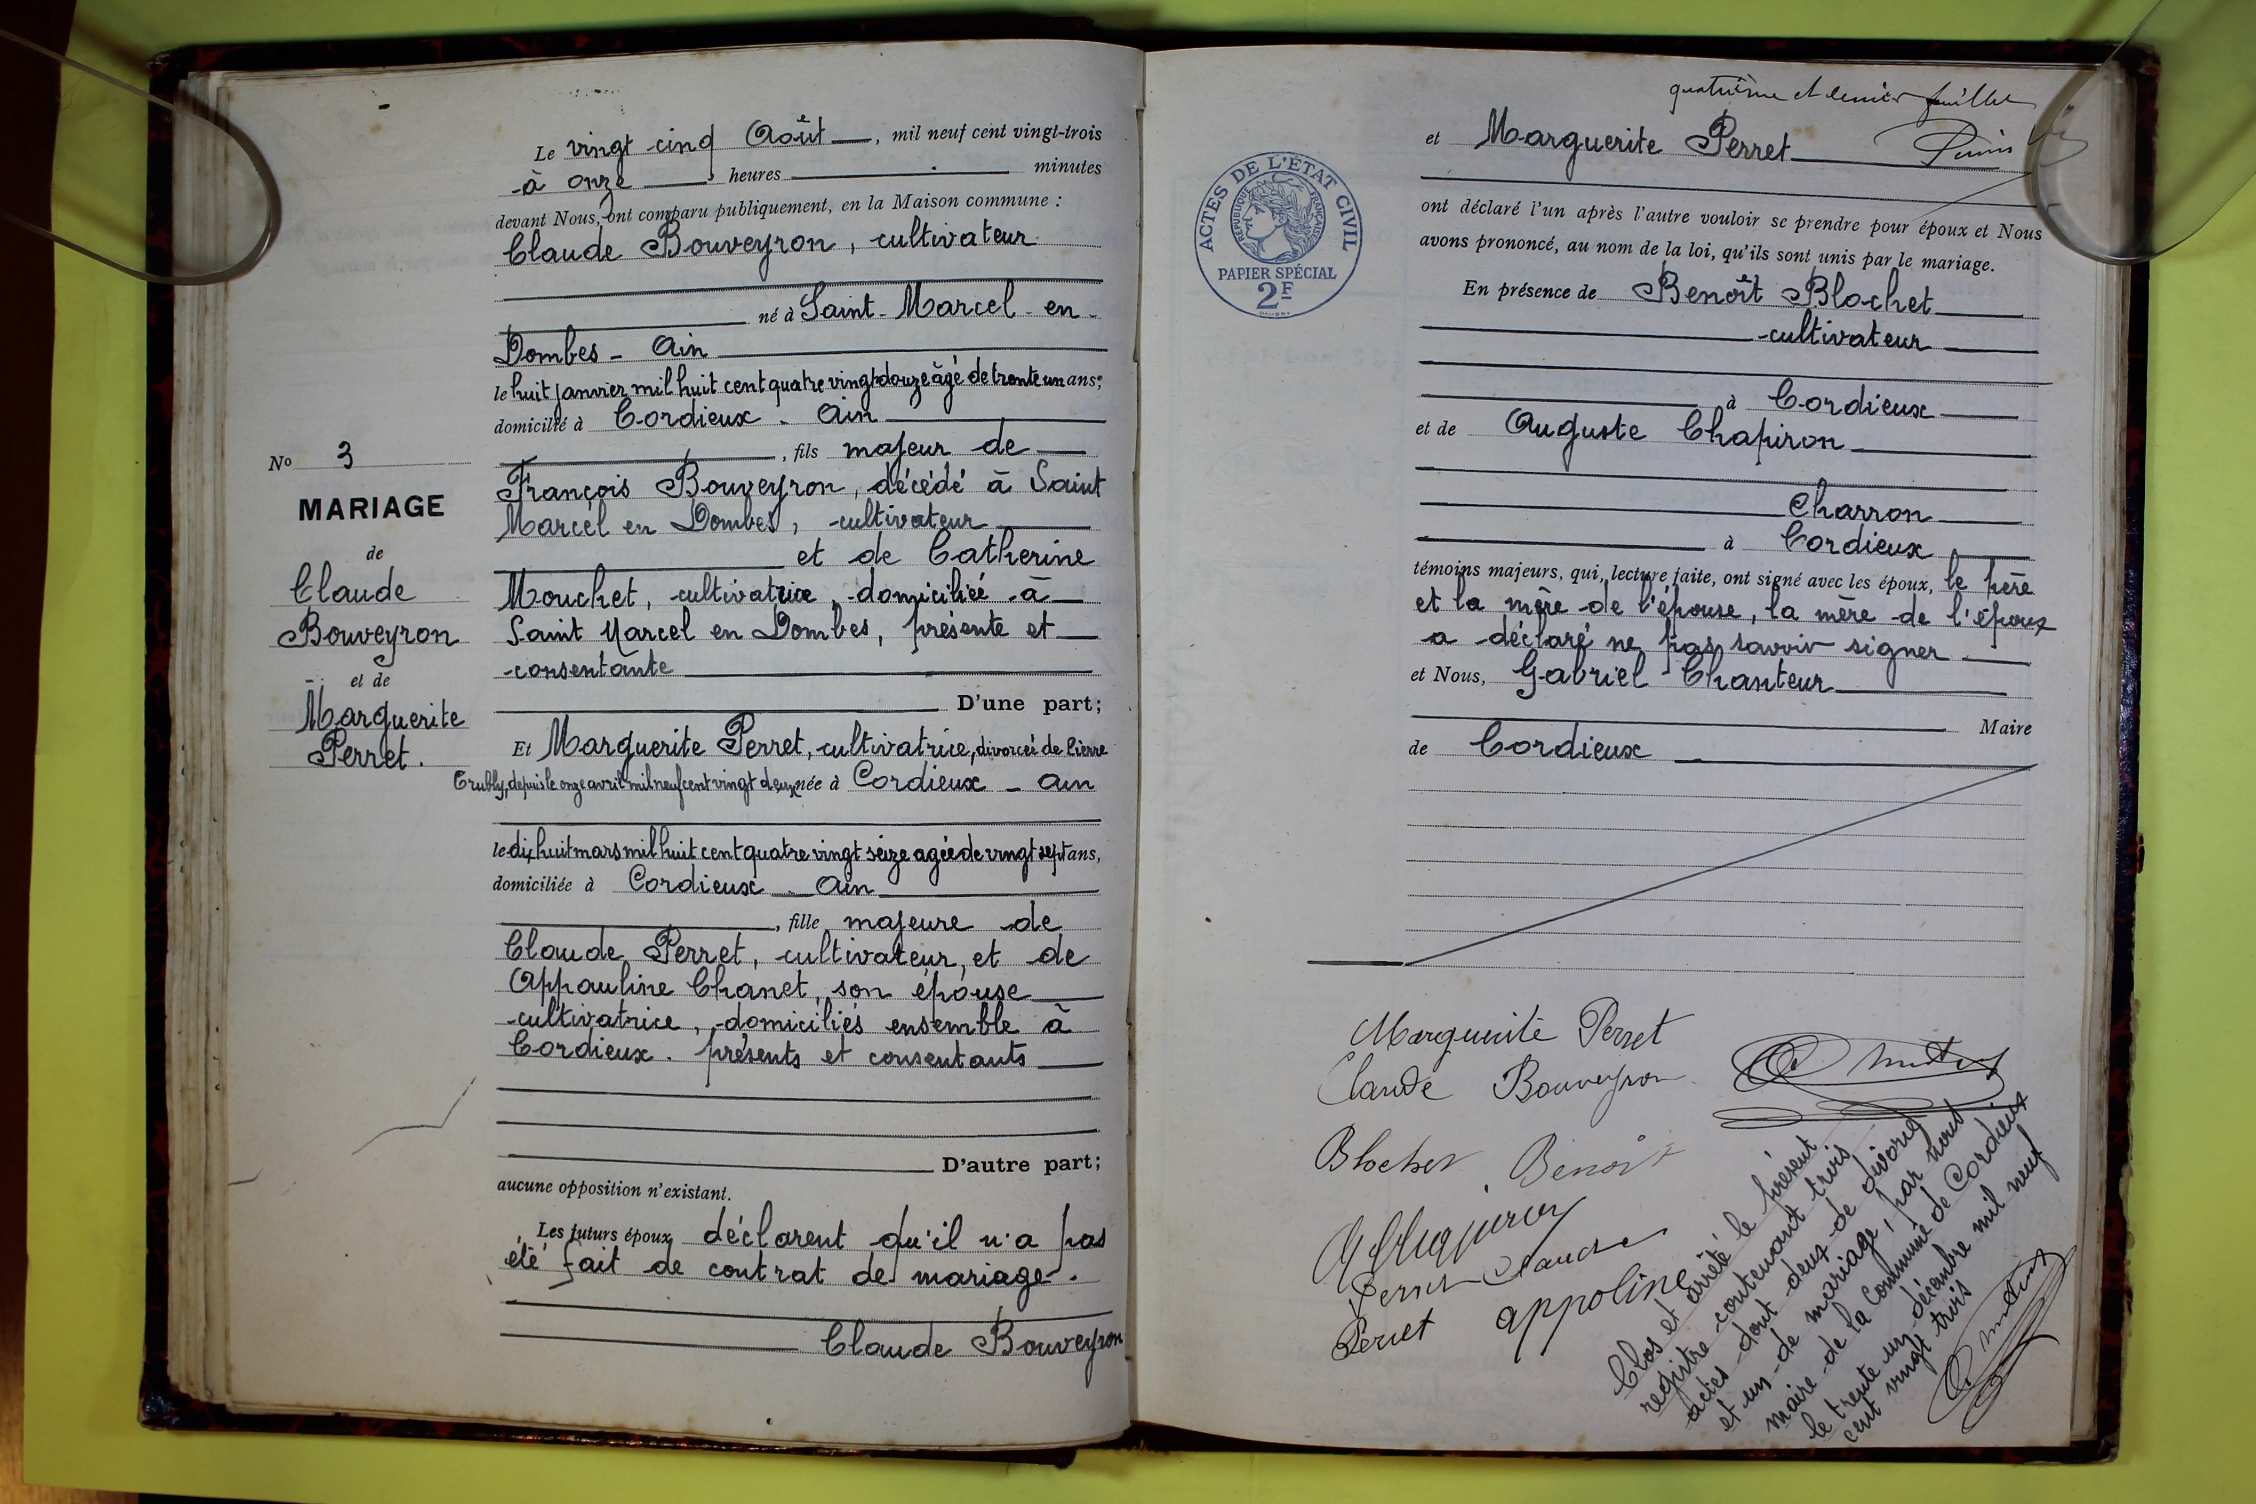 Le vingt cinq Août, mil neuf cent vingt-trois
à onze heures minutes
devant Nous, ont comparu publiquement, en la Maison commune :
Claude Bouveyron, cultivateur
né à Saint-Marcel-en-
Dombes - Ain
le huit janvier mil huit cent quatre vingt douze âgé de trente un ans;
domicilié à Cordieux - Ain
, fils majeur de
François Bouveyron, décédé à Saint
Marcel en Dombes, cultivateur
et de Catherine
Mouchet, cultivatrice, domiciliée à
Saint Marcel en Dombes, présente et
consentante
D'une part;
Et Marguerite Perret, cultivatrice, divorcée de Pierre
Trubly, depuis le onze avril mil neuf cent vingt deux née à Cordieux - Ain
le dix huit mars mil huit cent quatre vingt seize agée de vingt sept ans,
domiciliée à Cordieux - Ain
, fille majeure de
Claude Perret, cultivateur, et de
Appauline Chanet, son épouse
cultivatrice, domiciliés ensemble à
Cordieux. présents et consentants
D'autre part;
aucune opposition n'existant.
Les futurs époux déclarent qu'il n'a pas
été fait de contrat de mariage.
Claude Bouveyron
No 3
MARIAGE
de
Claude
Bouveyron
et de
Marguerite
Perret.
quatrième et dernier feuillet
et Marguerite Perret
ACTES DE L'ÉTAT CIVIL
RÉPUBLIQUE FRANÇAISE
PAPIER SPÉCIAL
2F
ont déclaré l'un après l'autre vouloir se prendre pour époux et Nous
avons prononcé, au nom de la loi, qu'ils sont unis par le mariage.
En présence de Benoît Blochet
cultivateur
à Cordieux
et de Auguste Chapiron
Charron
à Cordieux
témoins majeurs, qui, lecture faite, ont signé avec les époux, le père
et la mère de l'épouse, la mère de l'époux
a déclaré ne pas savoir signer
et Nous, Gabriel Chanteur
Maire
de Cordieux
Marguerite Perret
Claude Bouveyron
Blochet Benoit
Perret Claude
Perret appoline
Clos et arrêté le présent
registre contenant trois
actes dont deux de divorce
et un de mariage, par nous
maire de la Commune de Cordieux
le trente un décembre mil neuf
cent vingt trois